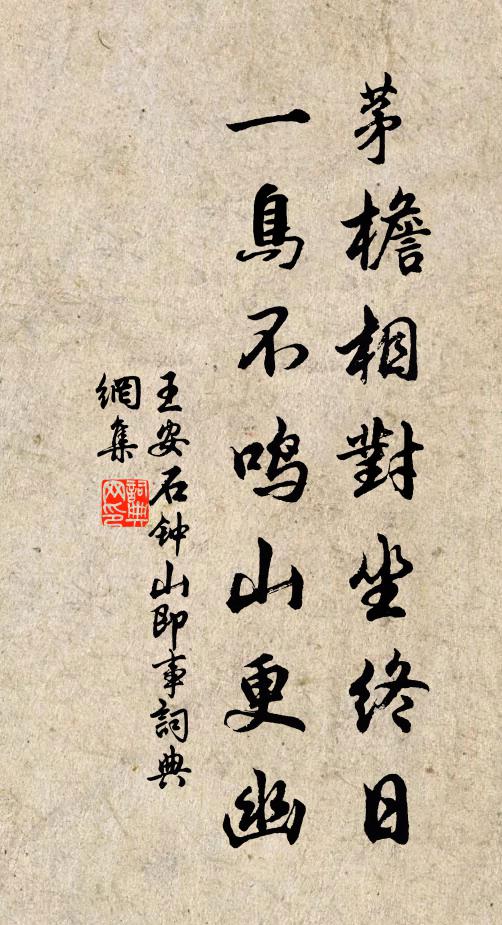 茅檐相對坐終日
一鳥不鳴山更幽
王安石钟山即事詞典
網集
詞典网印